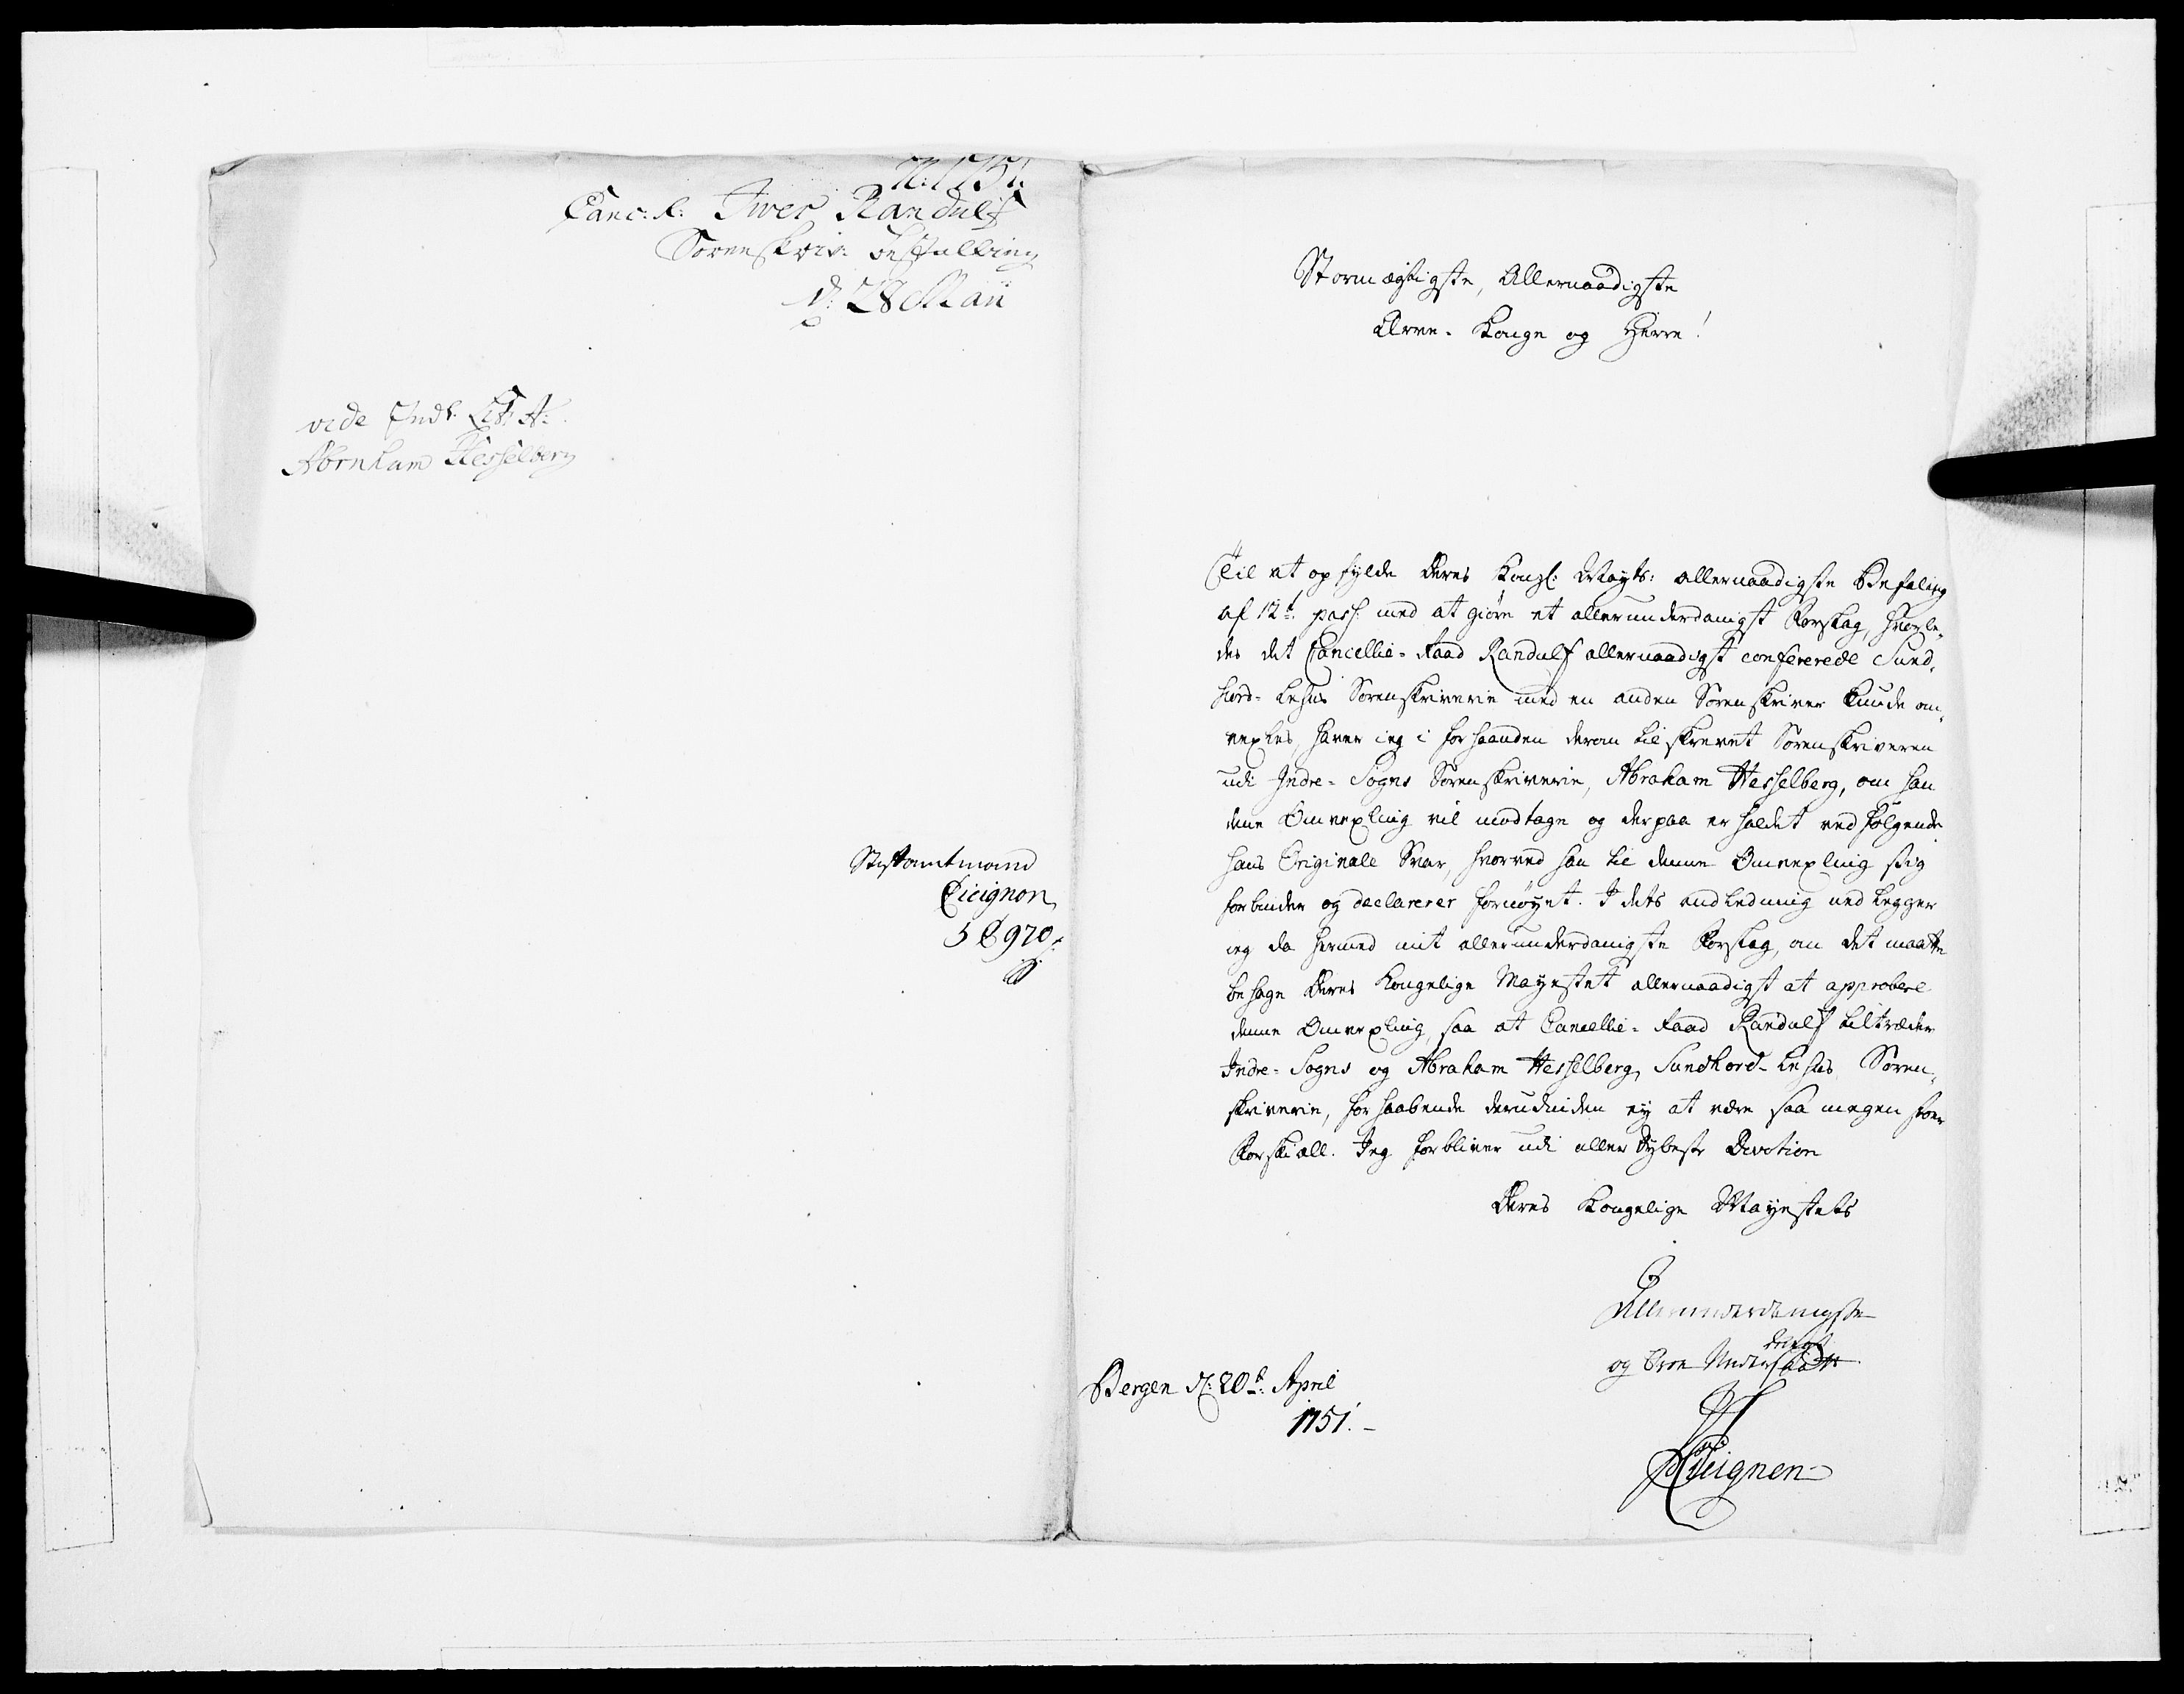 Ao: 1751.
Canc: R: Iver Randulf
Sorenskriv: bestalling
d: 28 Maii
vide Indl: Lit: A:
Abraham Hesselberg
Stiftamtmand
Cicignon
5 C 970
Stormægtigste, Allernaadigste
Arve-Konge og Herre!
Til at opfylde Deres Kongl: Mayts: allernaadigste Befaling
af 12te pass: med at giøre et allerunderdanigst Forslag, hvorle-
des det Cancellie-Raad Randulf allernaadigst confererede Sund-
hord-Lehns Sorenskriverie med en anden Sorenskriver kunde om-
vexles, haver jeg i forhaanden derom tilskrevet Sorenskriveren
udi Indre-Sogns Sorenskriverie, Abraham Hesselberg, om han
denne Omvexling vil modtage og derpaa erholdet vedfølgende
hans Originale Svar, hvorved han til denne Omvexling sig
forbinder og declarerer fornøyet. I dets andledning nedlegger
jeg da hermed mit allerunderdanigste Forslag, om det maatte
behage Deres Kongelige Mayestet allernaadigst at approbere
denne Omvexling, saa at Cancellie-Raad Randulf tiltræder
Indre-Sogns og Abraham Hesselberg, Sundhord-Lehns Soren-
skriverie, forhaabende derudinden ey at være saa megen stor
Forskiæll. Jeg forbliver udi aller dybeste Devotion
Deres Kongelige Mayestets
Allerunderdanigste
og Troe Undersaatt
Bergen d: 20de: April
1751.-
Cicignon